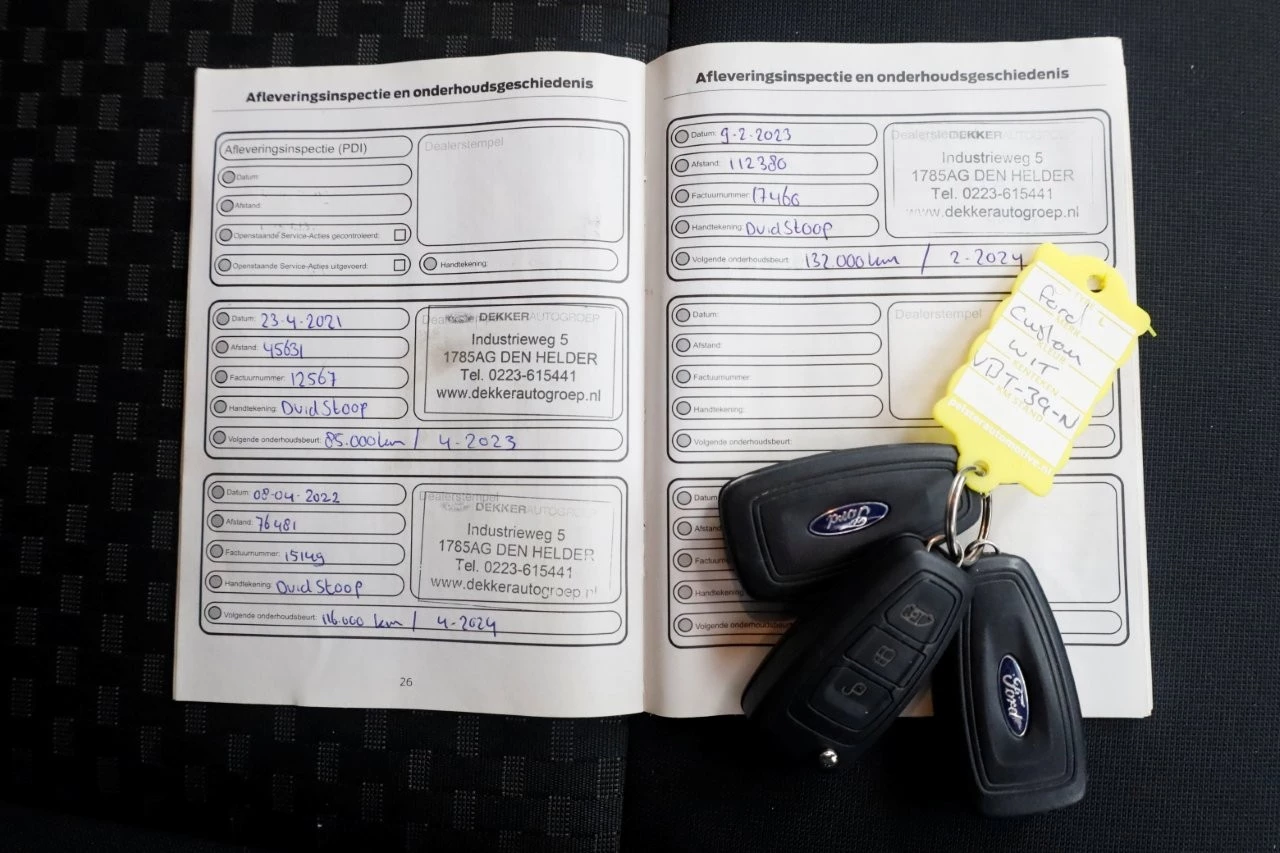 Afleveringsinspectie en onderhoudsgeschiedenis
Afleveringsinspectie (PDI)
Datum:
Afstand:
Openstaande Service-Acties gecontroleerd:
Openstaande Service-Acties uitgevoerd:
Dealerstempel
Handtekening:
Datum: 23-4-2021
Afstand: 45631
Factuurnummer: 12567
Handtekening: DvidStoop
Volgende onderhoudsbeurt: 85.000km / 4-2023
Dealerstempel
DEKKERAUTOGROEP
Industrieweg 5
1785AG DEN HELDER
Tel. 0223-615441
www.dekkerautogroep.nl
Datum: 08-04-2022
Afstand: 76481
Factuurnummer: 15149
Handtekening: DvidStoop
Volgende onderhoudsbeurt: 116.000 km / 4-2024
Dealerstempel
DEKKERAUTOGROEP
Industrieweg 5
1785AG DEN HELDER
Tel. 0223-615441
www.dekkerautogroep.nl
26
Afleveringsinspectie en onderhoudsgeschiedenis
Datum: 9-2-2023
Afstand: 112380
Factuurnummer: 17466
Handtekening: DvidStoop
Volgende onderhoudsbeurt: 132.000km / 2-2024
DEKKERAUTOGROEP
Industrieweg 5
1785AG DEN HELDER
Tel. 0223-615441
www.dekkerautogroep.nl
Datum:
Afstand:
Factuurnummer:
Handtekening:
Volgende onderhoudsbeurt:
Dealerstempel
Datum
Afstand
Factuurn
Handteke
Volgende onderhoudsbeurt
Ford
Custom
KLEUR
WIT
KENTEKEN
VBT-39-N
KM STAND
pelsterautomotive.nl
Ford
Ford